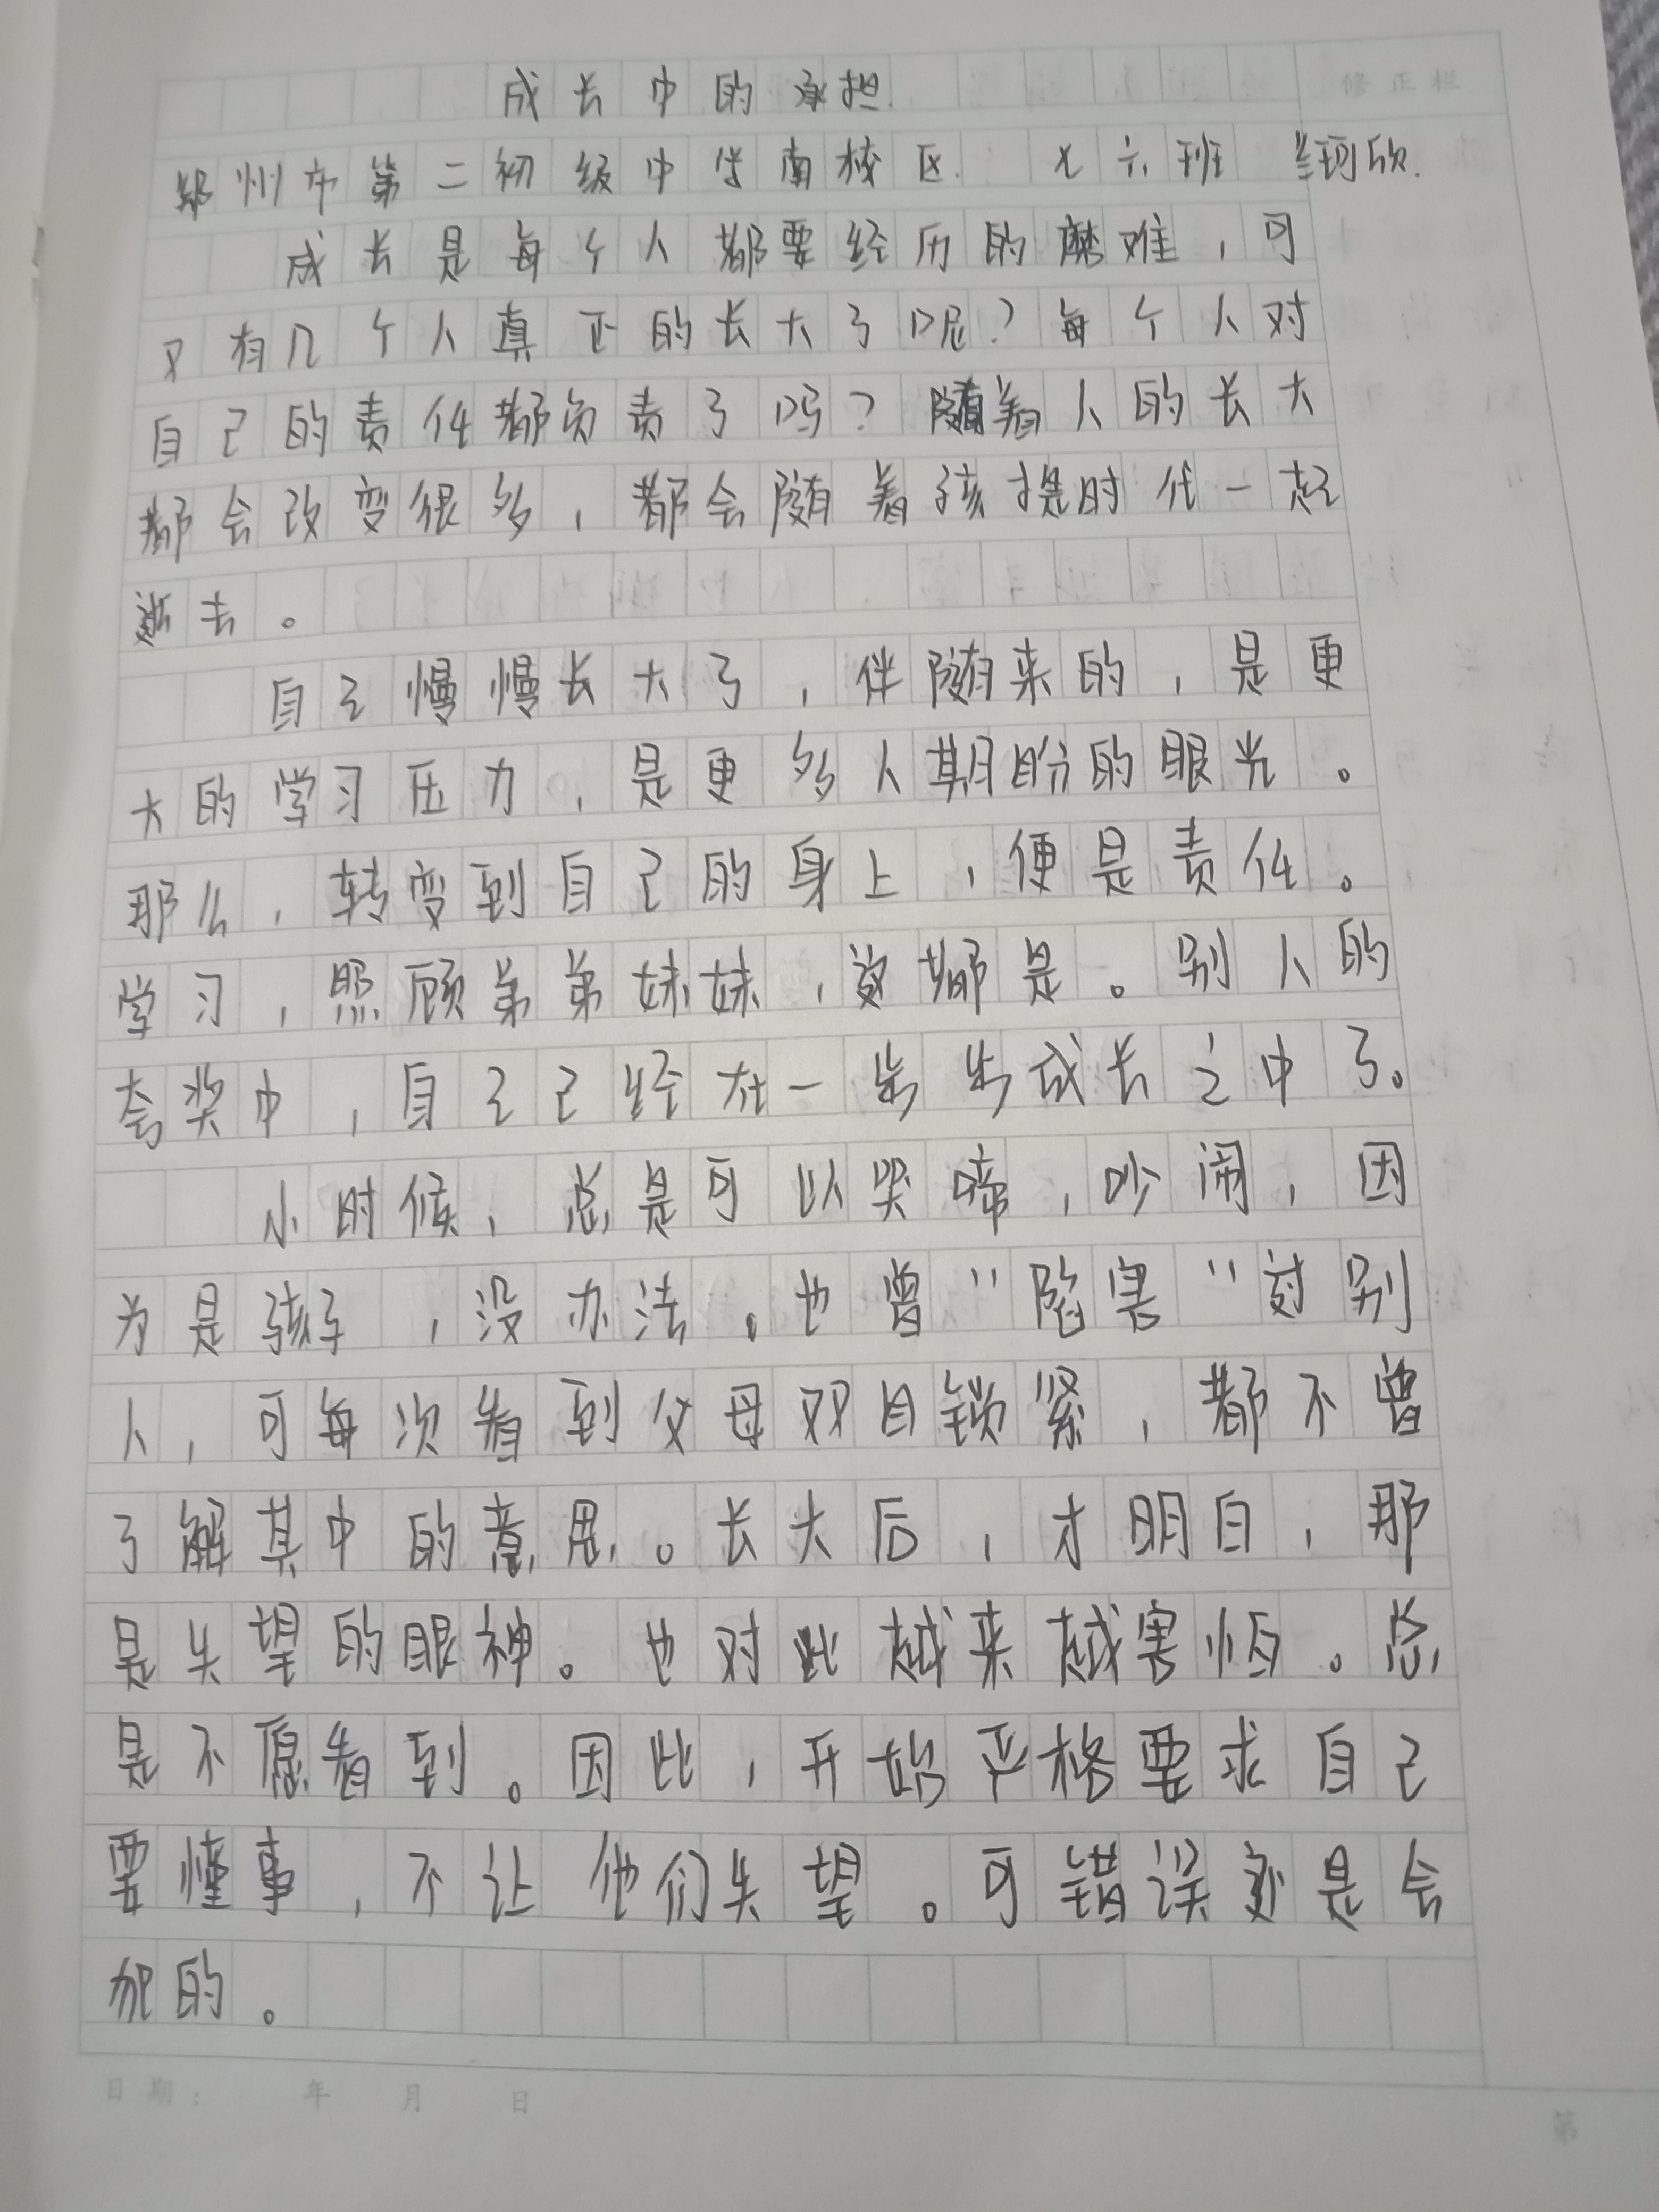 成长中的承担
修正栏
郑州市第二初级中学南校区 七六班
成长是每个人都要经历的磨难，可
又有几个人真正的长大了呢？每个人对
自己的责任都负责了吗？随着人的长大
都会改变很多，都会随着孩提时代一起
逝去。
自己慢慢长大了，伴随来的，是更
大的学习压力，是更多人期盼的眼光。
那么，转变到自己的身上，便是责任。
学习，照顾弟弟妹妹，这都是。别人的
夸奖中，自己已经在一步步成长之中了。
小时候，总是可以哭啼，吵闹，因
为是孩子，没办法。也曾“陷害”过别
人，可每次看到父母双目锁紧，都不曾
了解其中的意思。长大后，才明白，那
是失望的眼神。也对此越来越害怕。总
是不愿看到。因此，开始严格要求自己
要懂事，不让他们失望。可错误还是会
犯的。
日期： 年 月 日
第